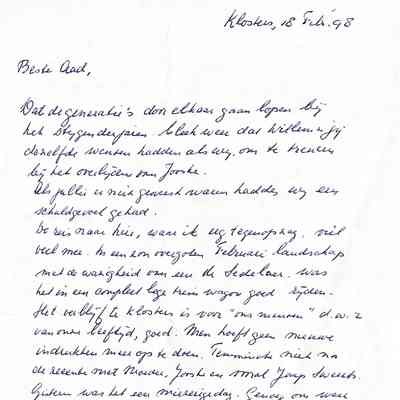 Klosters, 18 Febr. 98
Beste Aad,
Dat de generatie's door elkaar gaan lopen bij
het bleek weer dat Willem en jij
dezelfde wensen hadden als wy, om te treuren
bij het overlijden van Joosje.
Als jullie er niet geweest waren hadden wy een
schuldgevoel gehad.
De reis naar hier, waar ik erg tegenop zag, viel
veel mee. In een zon overgoten Februari landschap
met de om een de was
het in een compleet lege trein wagon goed rijden.
Het verblijf te Klosters is voor "ons mensen" d.w.z
van onze leeftijd, goed. Men hoeft geen nieuwe
indrukken meer op te doen. Tenminste niet na
de recente met en vooral Jaap
Gisteren was het een Genoeg om weer